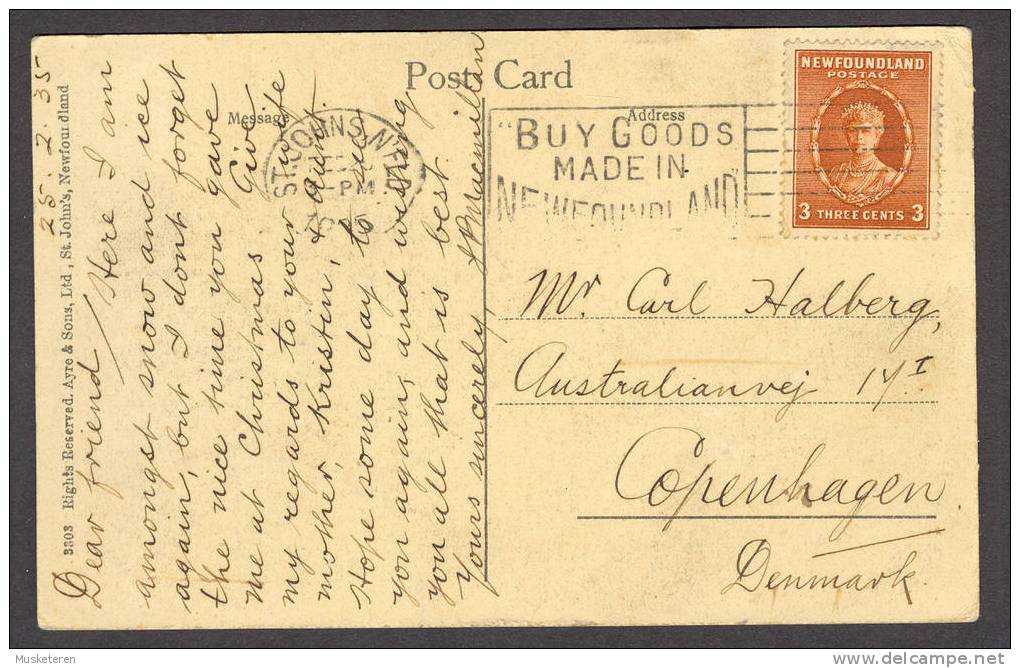 Post Card
Message
Address
3303 Rights Reserved. Ayre & Sons, Ltd., St. John's, Newfoundland
25. 2. 35
Dear friend / Here I am
amongst snow and ice
again, but I dont forget
the nice time you gave
me at Christmas Give
my regards to your wife
mother, Kristin, & Aunt.
Hope some day to see
you again, and wishing
you all that is best
Yours sincerely
ST. JOHN'S, NFLD
PM
"BUY GOODS
MADE IN
NEWFOUNDLAND"
NEWFOUNDLAND
POSTAGE
3 THREE CENTS 3
Mr Carl Halberg,
Australianvej
Copenhagen
Denmark.
Musketeren
delcampe.net